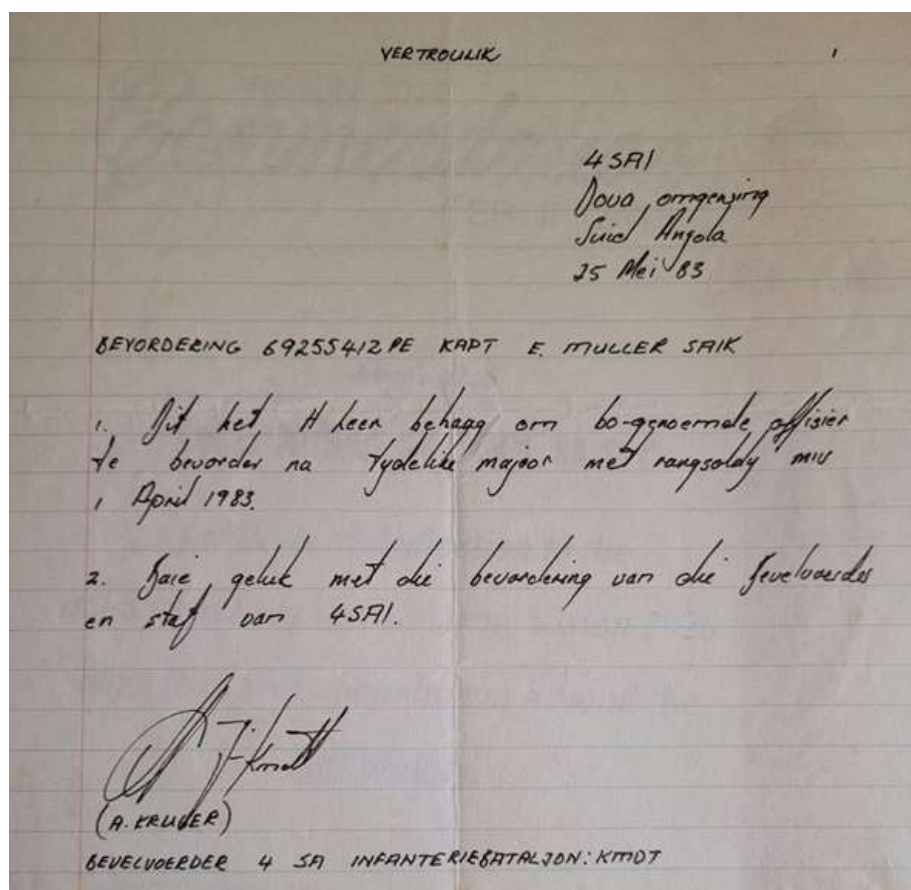 VERTROULIK 1
4 SAI
Dova omgewing
Suid Angola
25 Mei 83
BEVORDERING 69255412 PE KAPT E. MULLER SAIK
1. Dit het H Leer behaag om bo-genoemde offisier
te bevorder na tydelike majoor met rangsoldy miv
1 April 1983.
2. Baie geluk met die bevordering van die Bevelvoerder
en staf van 4SAI.
Kmdt
(A. KRUGER)
BEVELVOERDER 4 SA INFANTERIEBATALJON: KMDT